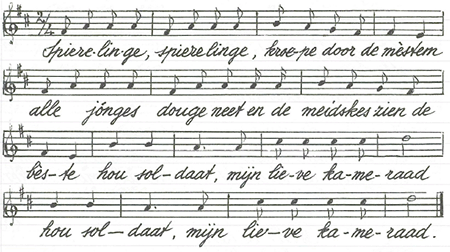 2/4
Spiere-lin-ge, spierelinge, kroe-pe door de mèstem
alle jônges douge neet en de meidskes zien de
bès-te hou sol-daat, mijn lie-ve ka-me-raad
hou sol-daat, mijn lie-ve ka-me-raad.